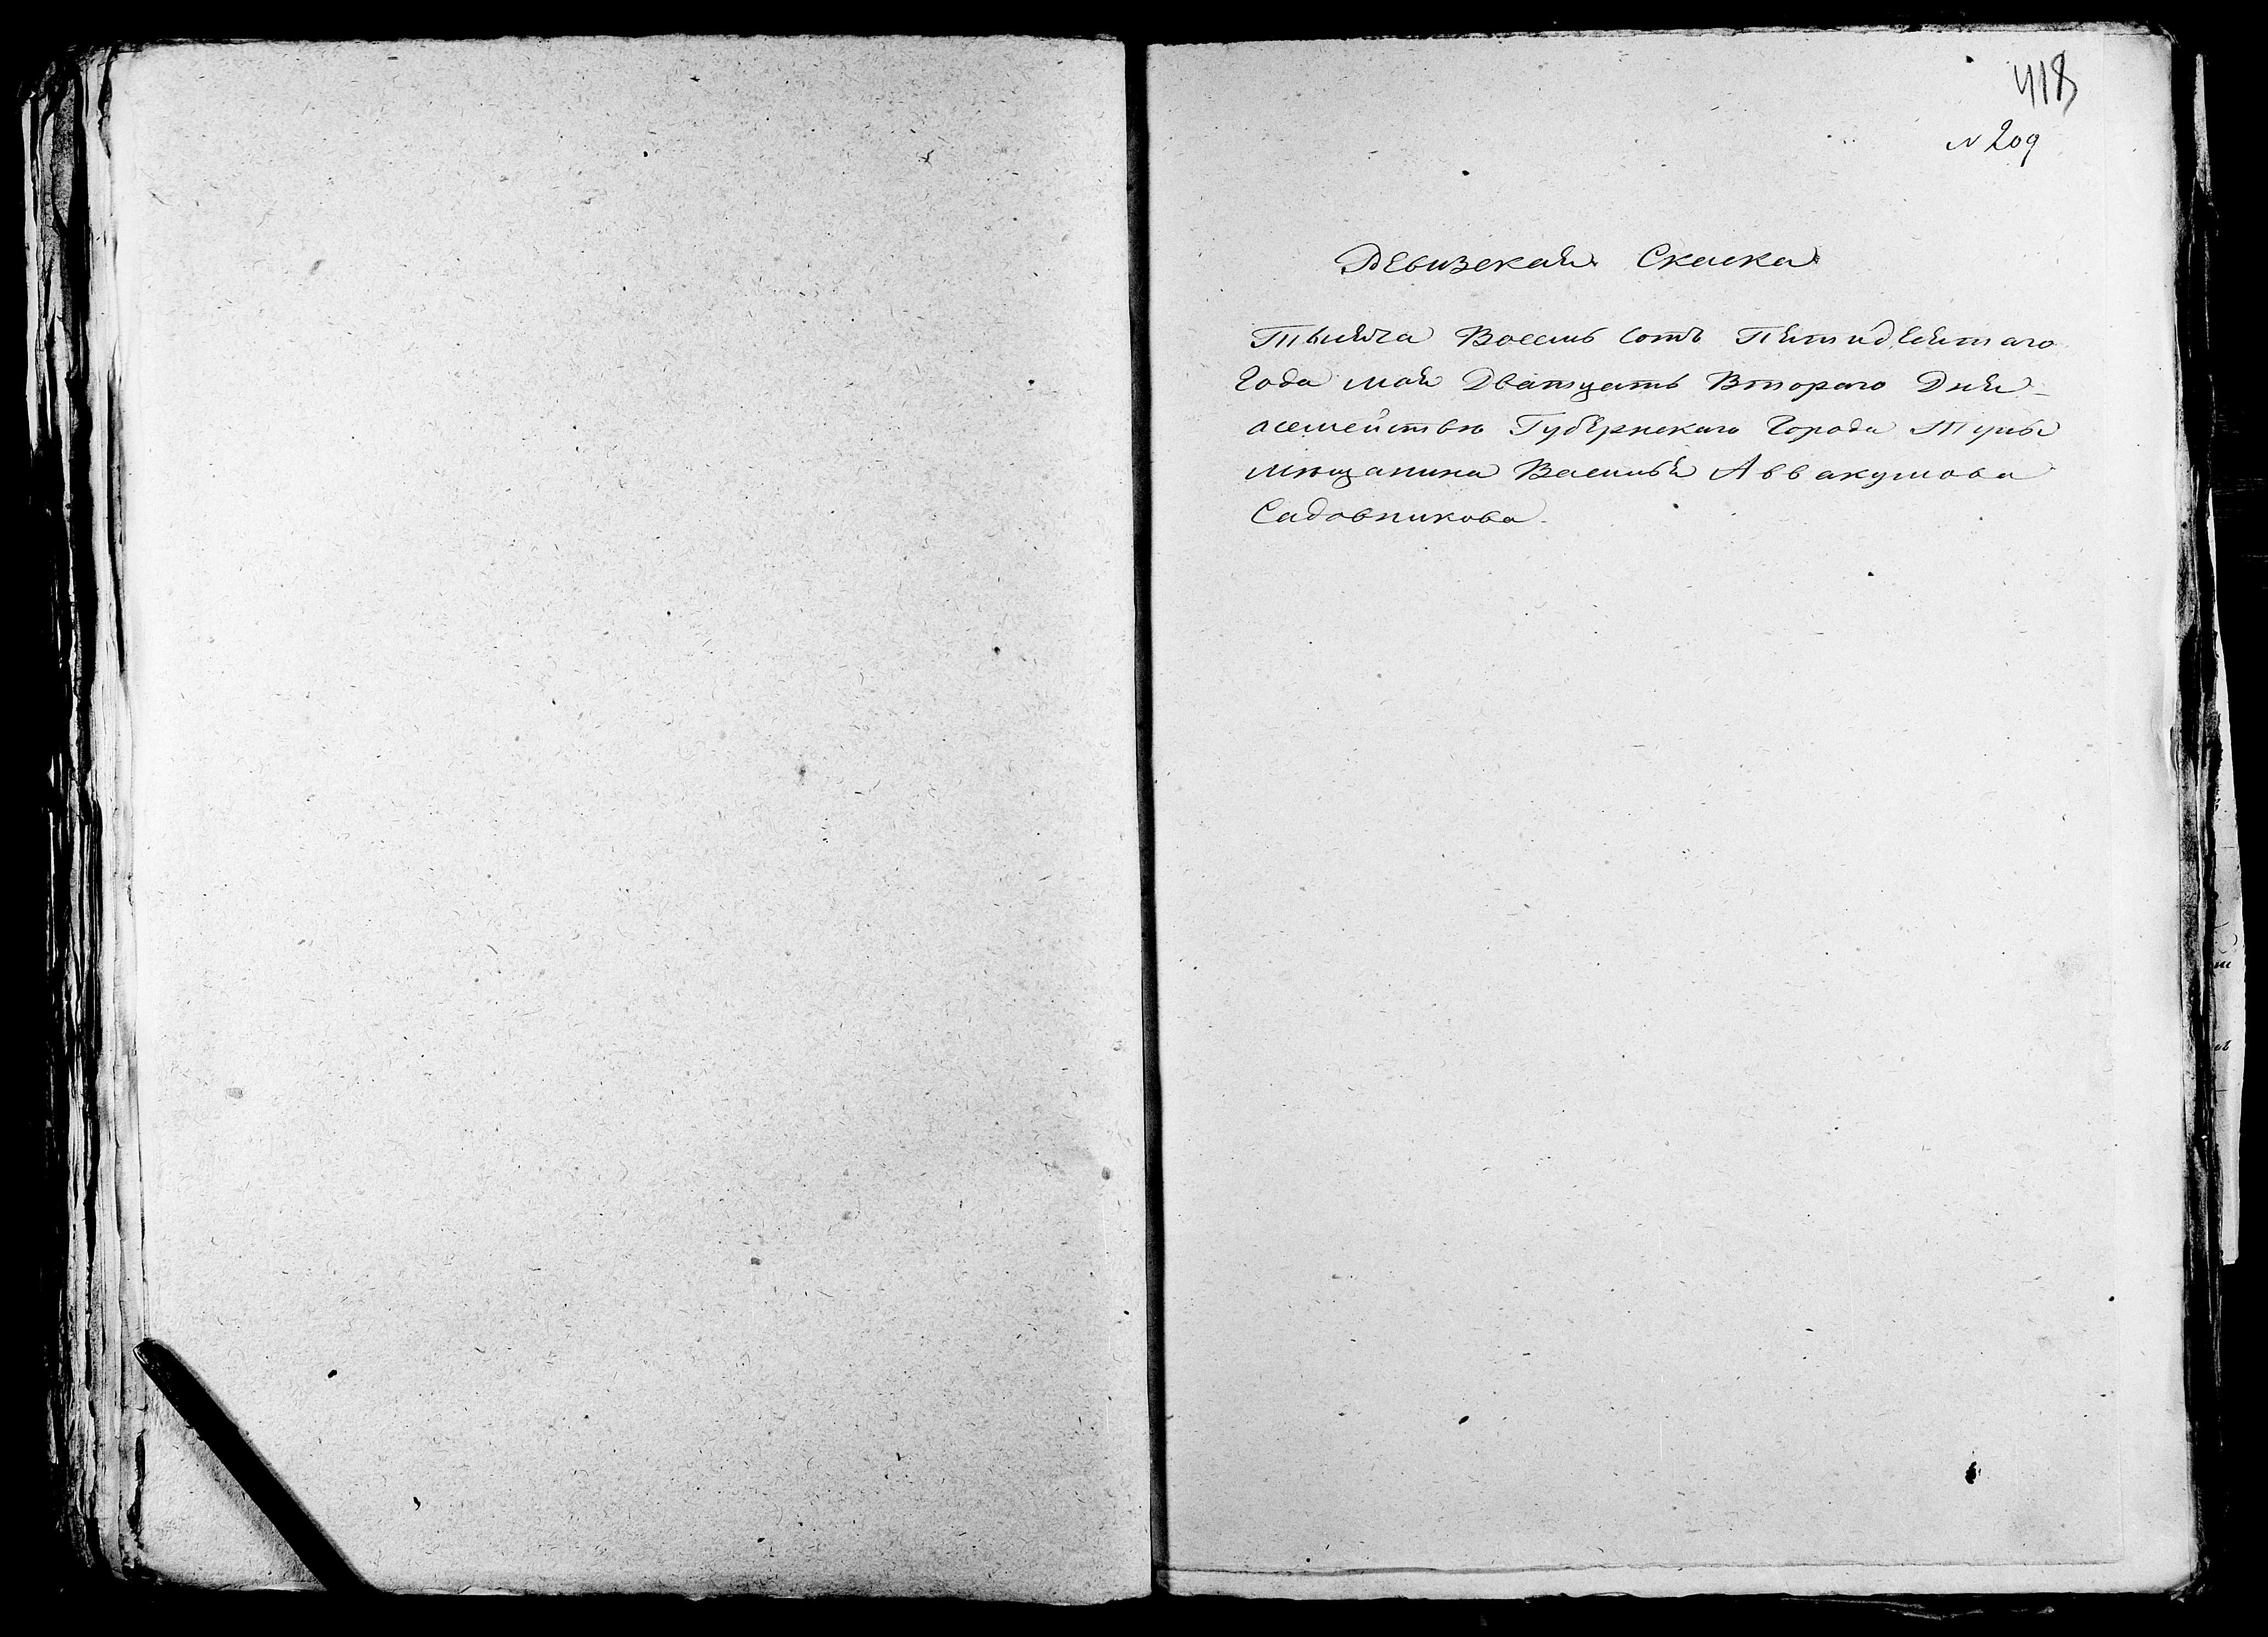 418
N 209
Ревизская Скаска
Тысяча Восемь сотъ Пятидесятаго
Года мая Дватцать Втораго Дня
осемействѣ Губернскаго Города Тулы
мѣщанина Василья Аввакумова
Садовникова.